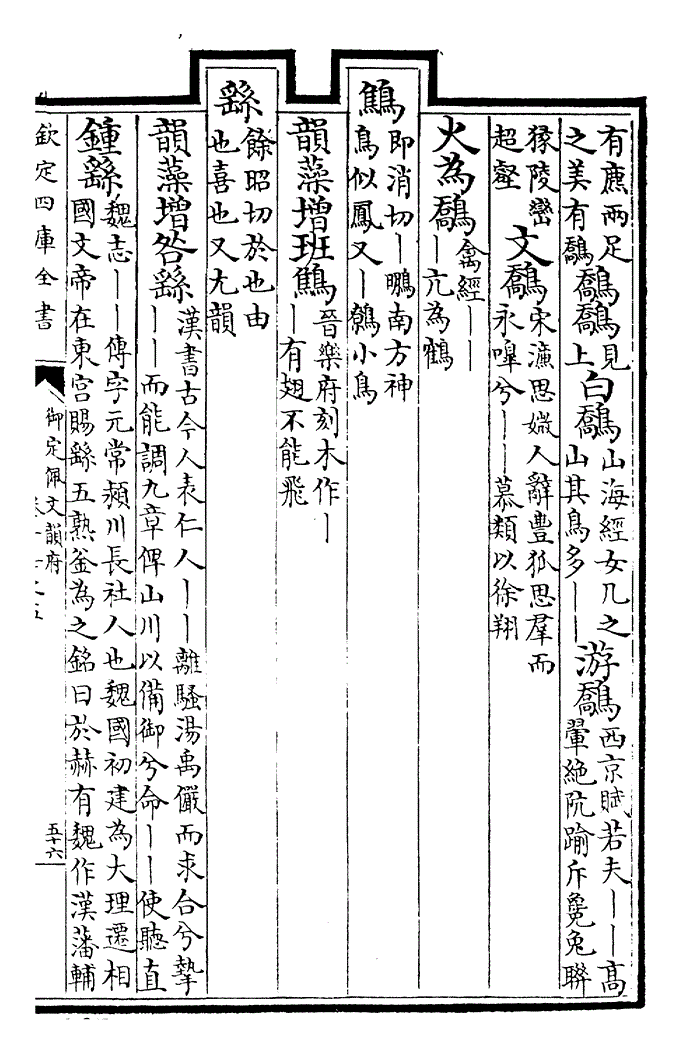 有麃兩足
之美有鷮
鷮鷮
見
上
白鷮
山海經女几之
山其鳥多——
游鷮
西京賦若夫——髙
翬絶阬踰斥毚兔聯
猭陵巒
超壑
文鷮
宋濂思媺人辭豊狐思羣而
永嘷兮——慕類以徐翔
火為鷮
禽經——
—亢為鶴
鷦
即消切—鵬南方神
鳥似鳳又—鷯小鳥
韻藻増班鷦
晉樂府刻木作—
—有翅不能飛
繇
餘昭切於也由
也喜也又尤韻
韻藻増咎繇
漢書古今人表仁人——離騷湯禹儼而求合兮摯
——而能調九章俾山川以備御兮命——使聽直
鍾繇
魏志——傳字元常潁川長社人也魏國初建為大理遷相
國文帝在東宫賜繇五熟釜為之銘曰於赫有魏作漢藩輔
欽定四庫全書
御定佩文韻府
五十六